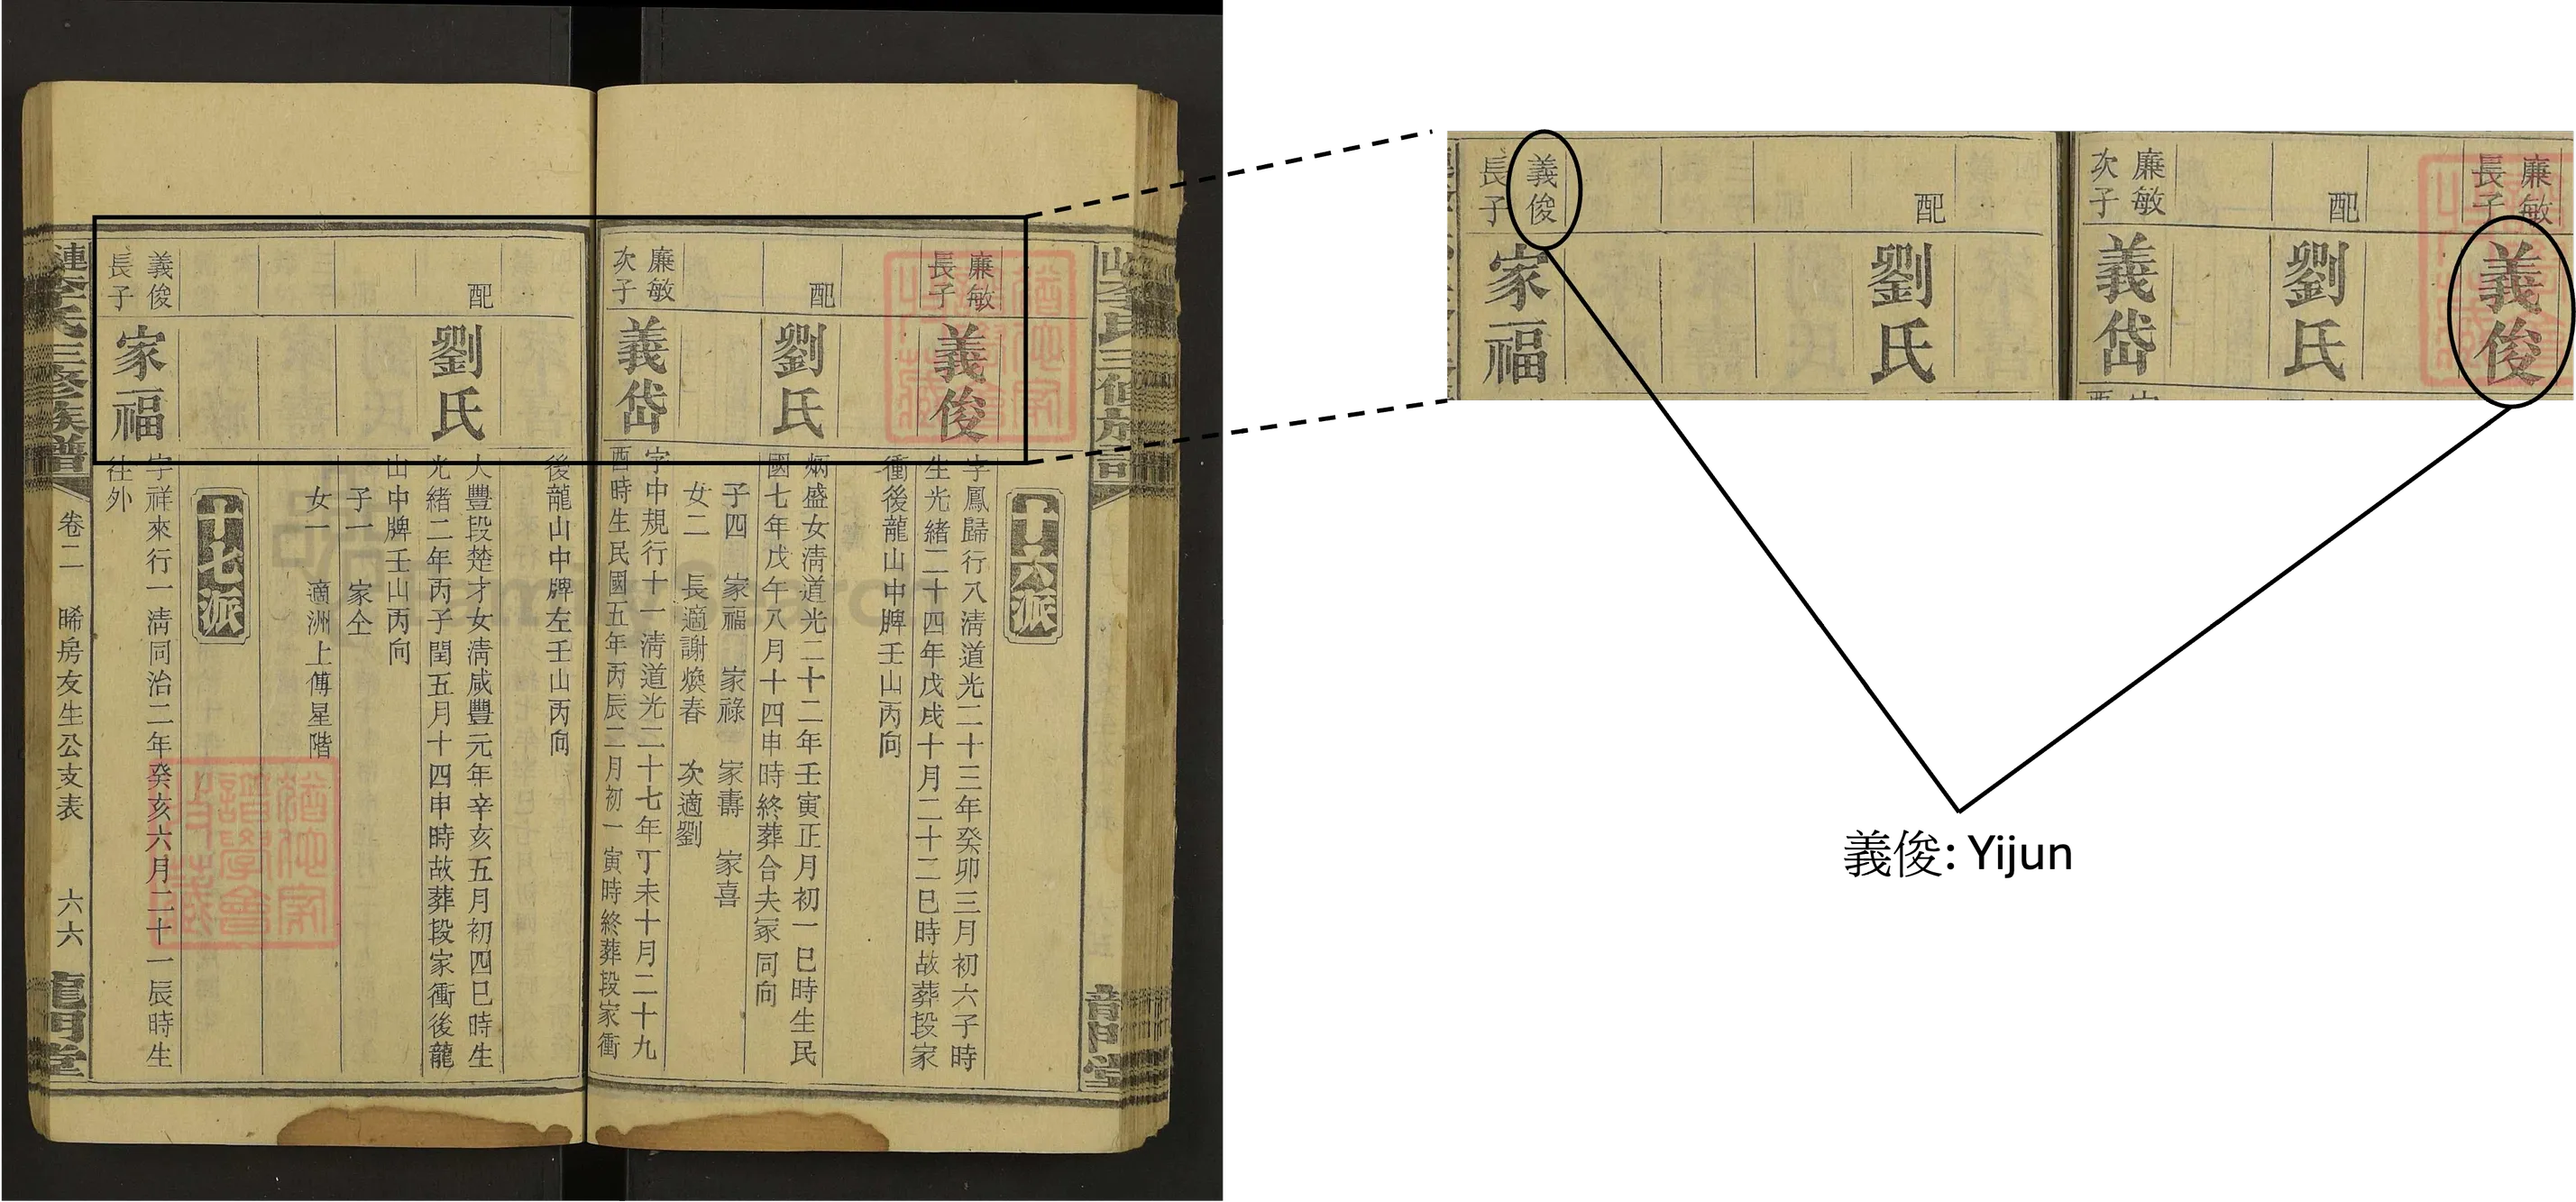 十六派
廉敏
長子
義俊
字鳳歸行八清道光二十三年癸卯三月初六子時
生光緒二十四年戊戌十月二十二巳時故葬段家
衝後龍山中牌壬山丙向
配
劉氏
炳盛女清道光二十二年壬寅正月初一巳時生民
國七年戊午八月十四申時終葬合夫冢同向
子四 家福 家祿 家壽 家喜
女二 長適謝煥春 次適劉
廉敏
次子
義岱
字中規行十一清道光二十七年丁未十月二十九
酉時生民國五年丙辰二月初一寅時終葬段家衝
後龍山中牌左壬山丙向
配
劉氏
人豐段楚才女清咸豐元年辛亥五月初四巳時生
光緒二年丙子閏五月十四申時故葬段家衝後龍
山中牌壬山丙向
子一 家仝
女一 適洲上傅星階
十七派
義俊
長子
家福
字祥來行一清同治二年癸亥六月二十一辰時生
往外
漣李氏三修族譜
卷二 晞房友生公支表 六六
龍門堂
廉敏
長子
義俊
配
劉氏
廉敏
次子
義岱
配
劉氏
義俊
長子
家福
義俊: Yijun